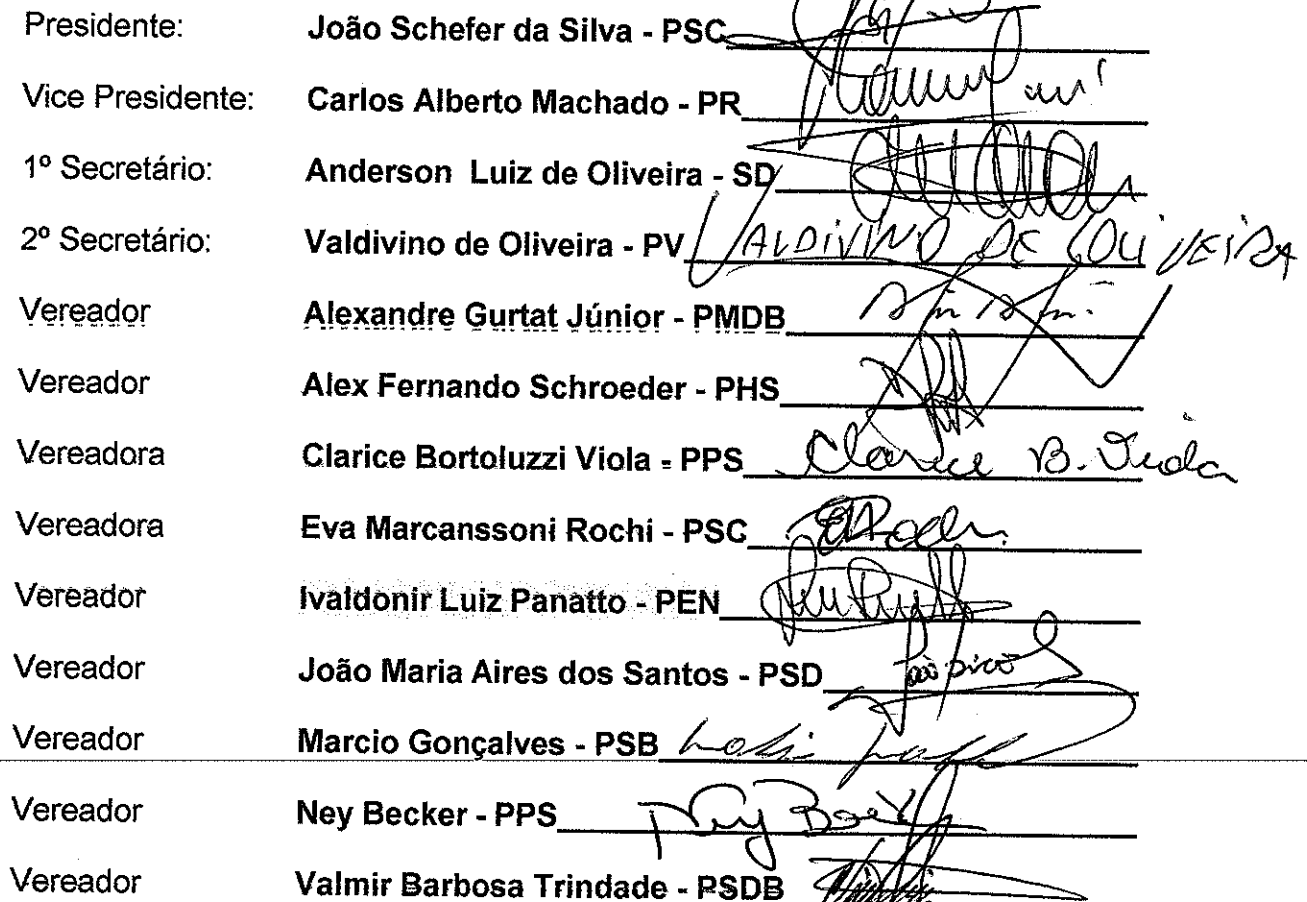 Presidente: João Schefer da Silva - PSC
Vice Presidente: Carlos Alberto Machado - PR
1º Secretário: Anderson Luiz de Oliveira - SD
2º Secretário: Valdivino de Oliveira - PV VALDIVINO DE OLIVEIRA
Vereador Alexandre Gurtat Júnior - PMDB
Vereador Alex Fernando Schroeder - PHS
Vereadora Clarice Bortoluzzi Viola - PPS Clarice B. Viola
Vereadora Eva Marcanssoni Rochi - PSC
Vereador Ivaldonir Luiz Panatto - PEN
Vereador João Maria Aires dos Santos - PSD
Vereador Marcio Gonçalves - PSB
Vereador Ney Becker - PPS Ney
Vereador Valmir Barbosa Trindade - PSDB